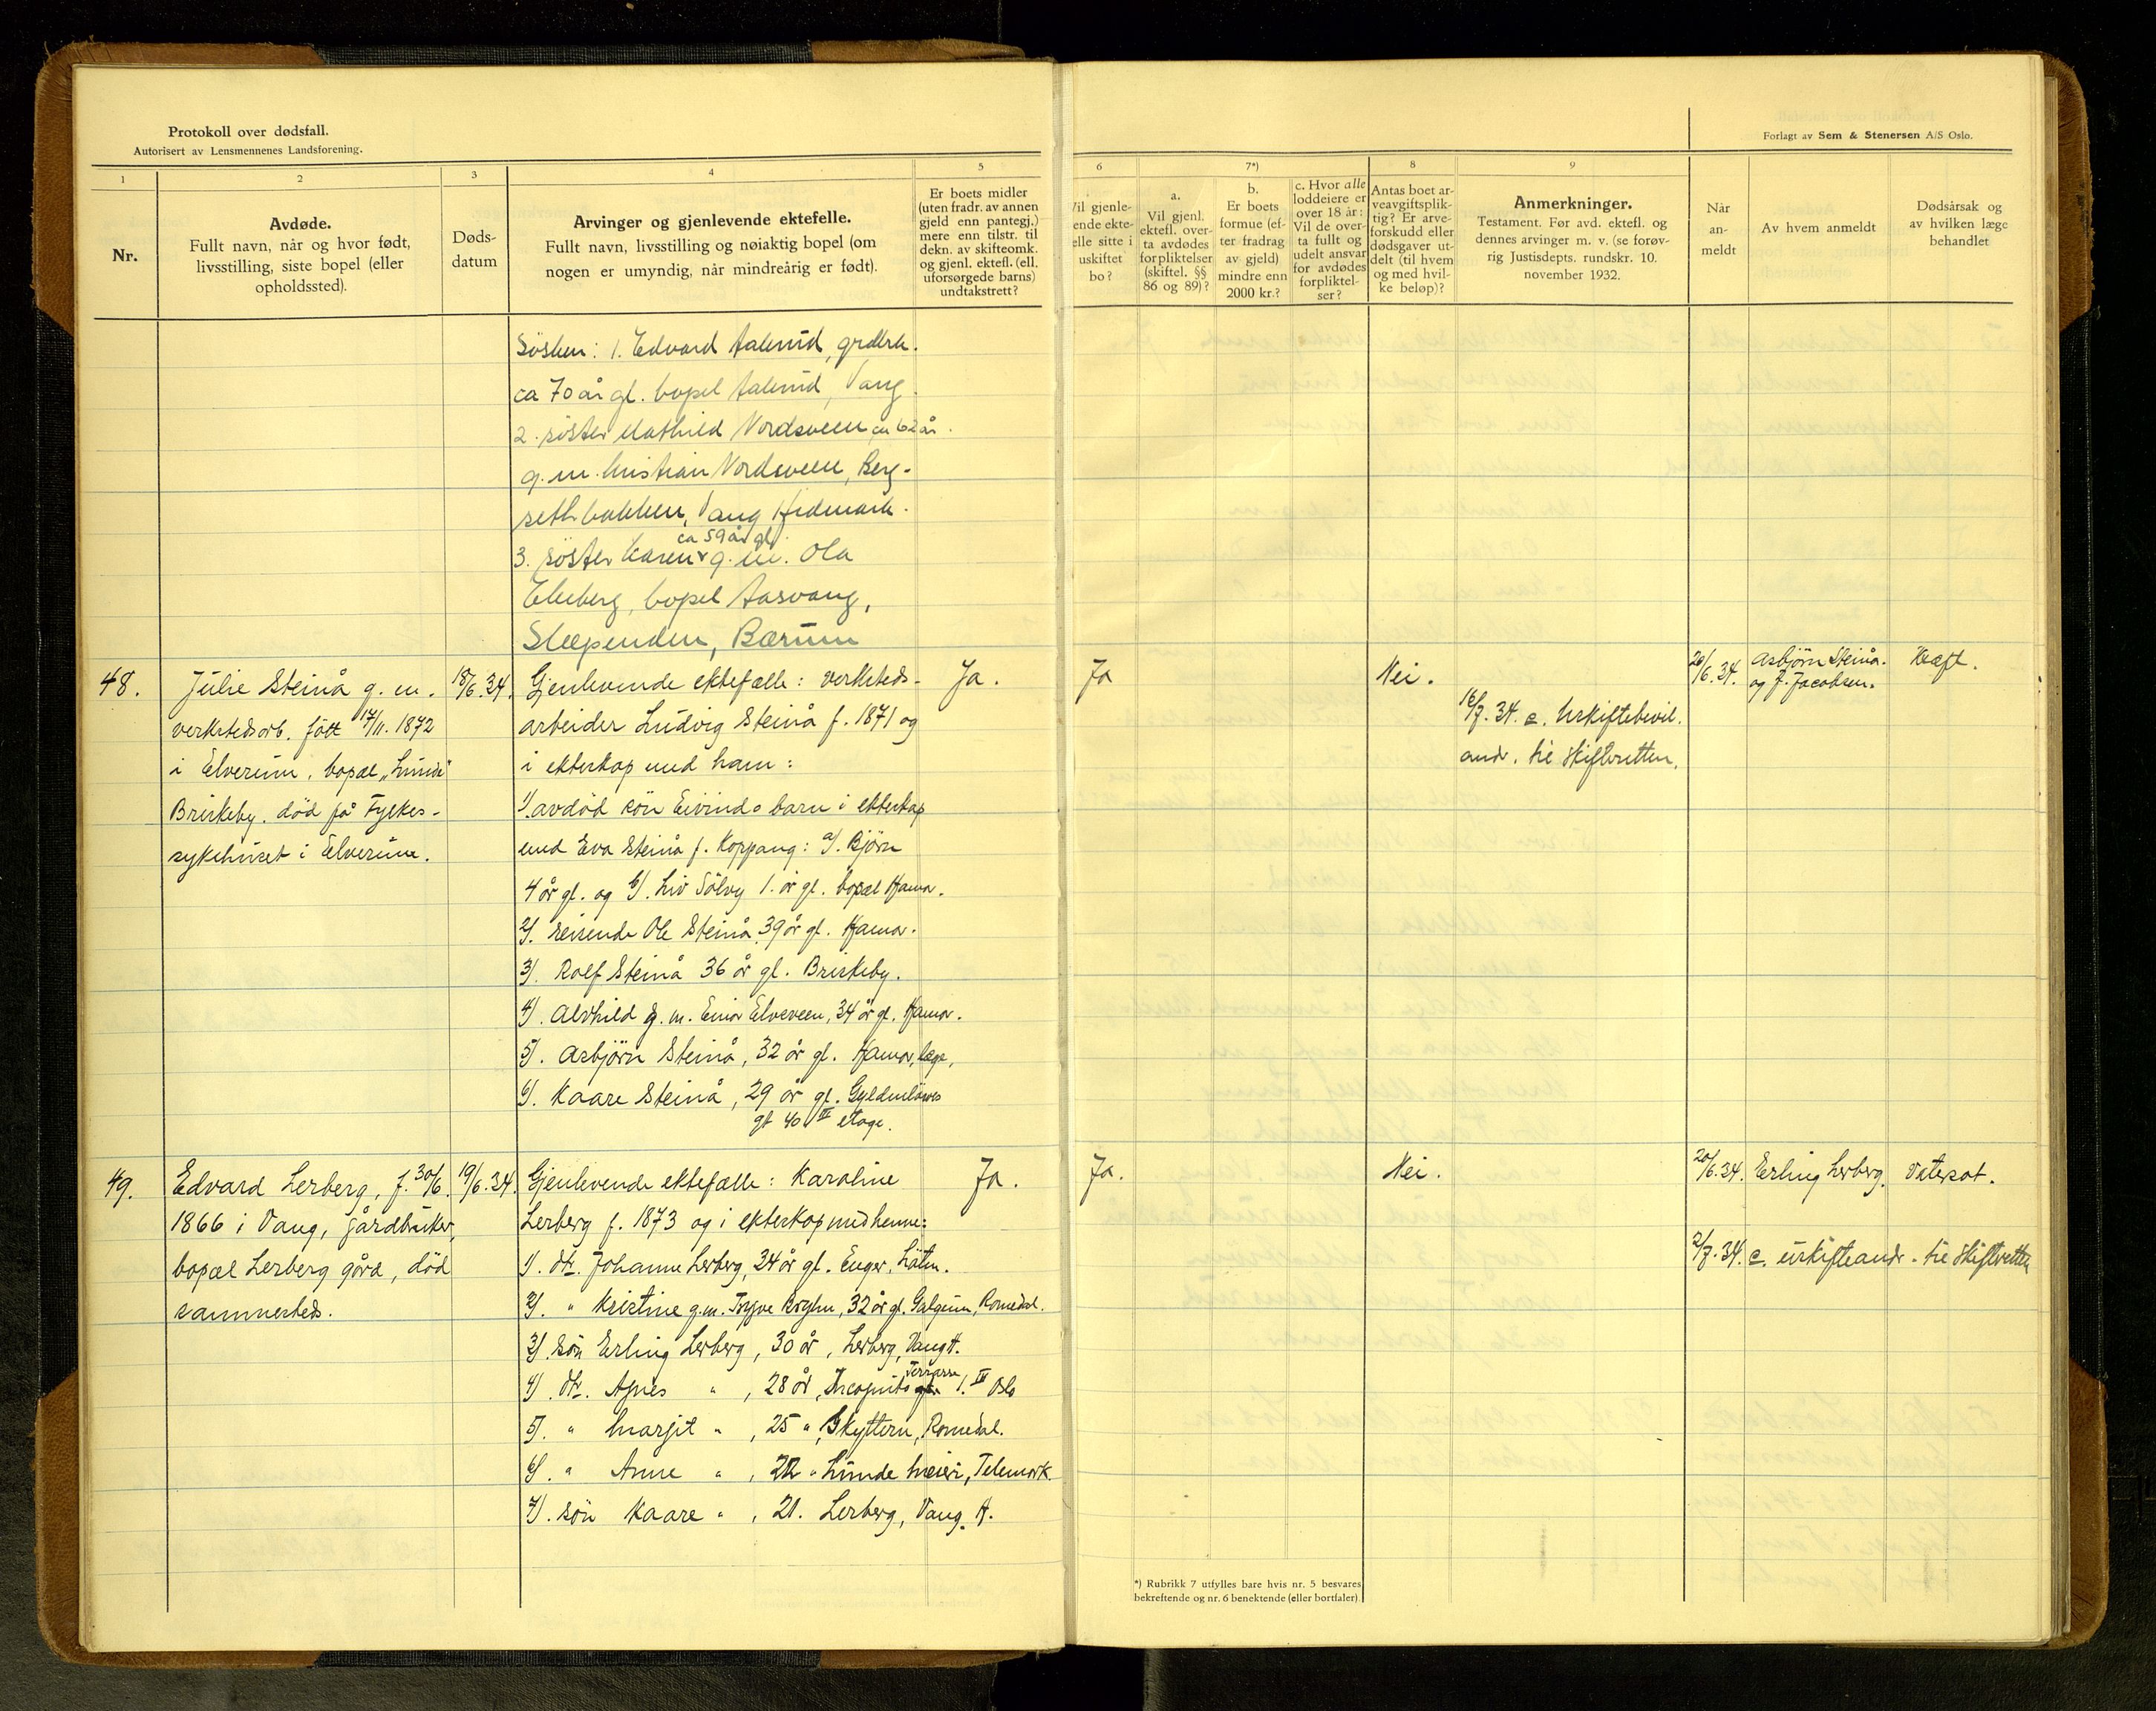 Protokoll over dødsfall.
Autorisert av Lensmennenes Landsforening.
Forlagt av Sem & Stenersen A/S Oslo.
1
2
3
4
5
6
7*)
8
9
Nr.
Avdøde.
Fullt navn, når og hvor født,
livsstilling, siste bopel (eller
opholdssted).
Døds-
datum
Arvinger og gjenlevende ektefelle.
Fullt navn, livsstilling og nøiaktig bopel (om
nogen er umyndig, når mindreårig er født).
Er boets midler
(uten fradr. av annen
gjeld enn pantegj.)
mere enn tilstr. til
dekn. av skifteomk.
og gjenl. ektefl. (ell.
uforsørgede barns)
undtakstrett?
Vil gjenle-
ende ekte-
elle sitte i
uskiftet
bo?
a.
Vil gjenl.
ektefl. over-
ta avdødes
forpliktelser
(skiftel. §§
86 og 89)?
b.
Er boets
formue (ef-
ter fradrag
av gjeld)
mindre enn
2000 kr.?
c. Hvor alle
loddeiere er
over 18 år:
Vil de over-
ta fullt og
udelt ansvar
for avdødes
forpliktel-
ser?
Antas boet ar-
veavgiftsplik-
tig? Er arve-
forskudd eller
dødsgaver ut-
delt (til hvem
og med hvil-
ke beløp)?
Anmerkninger.
Testament. Før avd. ektefl. og
dennes arvinger m. v. (se forøv-
rig Justisdepts. rundskr. 10.
november 1932.
Når
an-
meldt
Av hvem anmeldt
Dødsårsak og
av hvilken læge
behandlet
Søsken: 1. Edvard Aalerud, grdbrk.
ca 70 år gl. bopel Aalerud, Vang.
2. søster Mathild Nordsveen ca 62 år.
g. m. Kristian Nordsveen, Berg-
sethbakken, Vang Hedmark.
ca 59 år gl.
3. søster Karen g. m. Ola
Ekeberg, bopel Aasvang,
Slependen, Bærum
48.
Julie Steinå g. m.
verkstedsarb. født 17/11. 1872
i Elverum, bopæl „Lunde"
Briskeby. død på Fylkes-
sykehuset i Elverum.
18/6.34.
Gjenlevende ektefælle: verksteds-
arbeider Ludvig Steinå f. 1871 og
i ekteskap med ham:
1/. avdød søn Eivinds barn i ekteskap
med Eva Steinå f. Koppang: a/. Bjørn
4 år gl. og b/. Liv Sølvy 1. år gl. bopæl Hamar.
2/. reisende Ole Steinå 39 år gl. Hamar.
3/. Rolf Steinå 36 år gl. Briskeby.
4/. Alvhild g. m. Einar Elveveen, 34 år gl. Hamar.
5/. Asbjørn Steinå, 32 år gl. Hamar, læge,
6/. Kaare Steinå, 29 år gl. Gyldenløves
gt 40 II etage.
Ja.
Ja
Nei.
16/7. 34. s. Uskiftebevil.
andr. til Skifteretten.
20/6.34.
Asbjørn Steinå.
og J. Jacobsen.
Kræft.
49.
Edvard Lerberg, f. 30/6.
1866 i Vang, gårdbruker,
bopæl Lerberg gård, død
sammesteds.
19/6.34.
Gjenlevende ektefælle: Karoline
Lerberg f. 1873 og i ekteskap med henne:
1/. dtr. Johanne Lerberg, 34 år gl. Enger, Løten.
2/. " Kristine g.m. Trygve Bryhn, 32 år gl. Galgum, Romedal.
3/. søn Erling Lerberg, 30 år, Lerberg, Vang H.
Terrasse
4/. dtr. Agnes " , 28 år, Incognito gt. 1. IV Oslo
5/. " Margit " , 25 " , Skyttern, Romedal.
6/. " Anne " , 22 " Lunde meieri, Telemark.
7/. søn Kaare " , 21. Lerberg, Vang. H.
Ja.
Ja.
Nei.
20/6.34.
Erling Lerberg.
Vatersot.
2/7.34. s. uskifteandr. til Skifteretten
*) Rubrikk 7 utfylles bare hvis nr. 5 besvares
bekreftende og nr. 6 benektende (eller bortfaler).